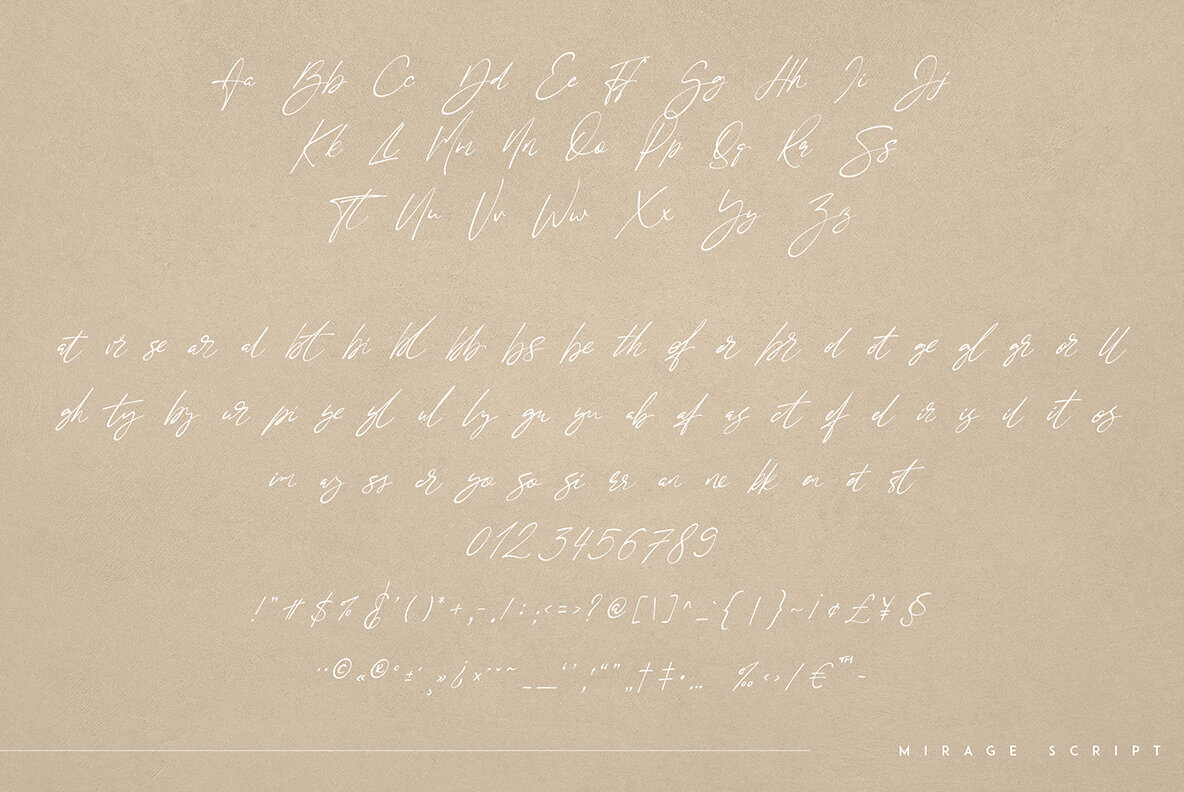 Aa Bb Cc Dd Ee Ff Gg Hh Ii Jj
Kk Ll Mm Nn Oo Pp Qq Rr Ss
Tt Uu Vv Ww Xx Yy Zz
at ir se ar al bt bi bl bb bs be th of er br el et ge gl gr or ll
gh ty by ur pi ye yl ul ly gu yu ab af as ct ef el ir is il it os
im ay ss er yo so si rr an ne bk en ot st
0123456789
!"#$%&'()*+,-./:;<=>?@[\]^_`{|}~¡¢£¥§
¨©«®°±´¸»¿×ˆ˘˜–—‘’‚‘“”„†‡•… ‰‹›⁄€™−
MIRAGE SCRIPT